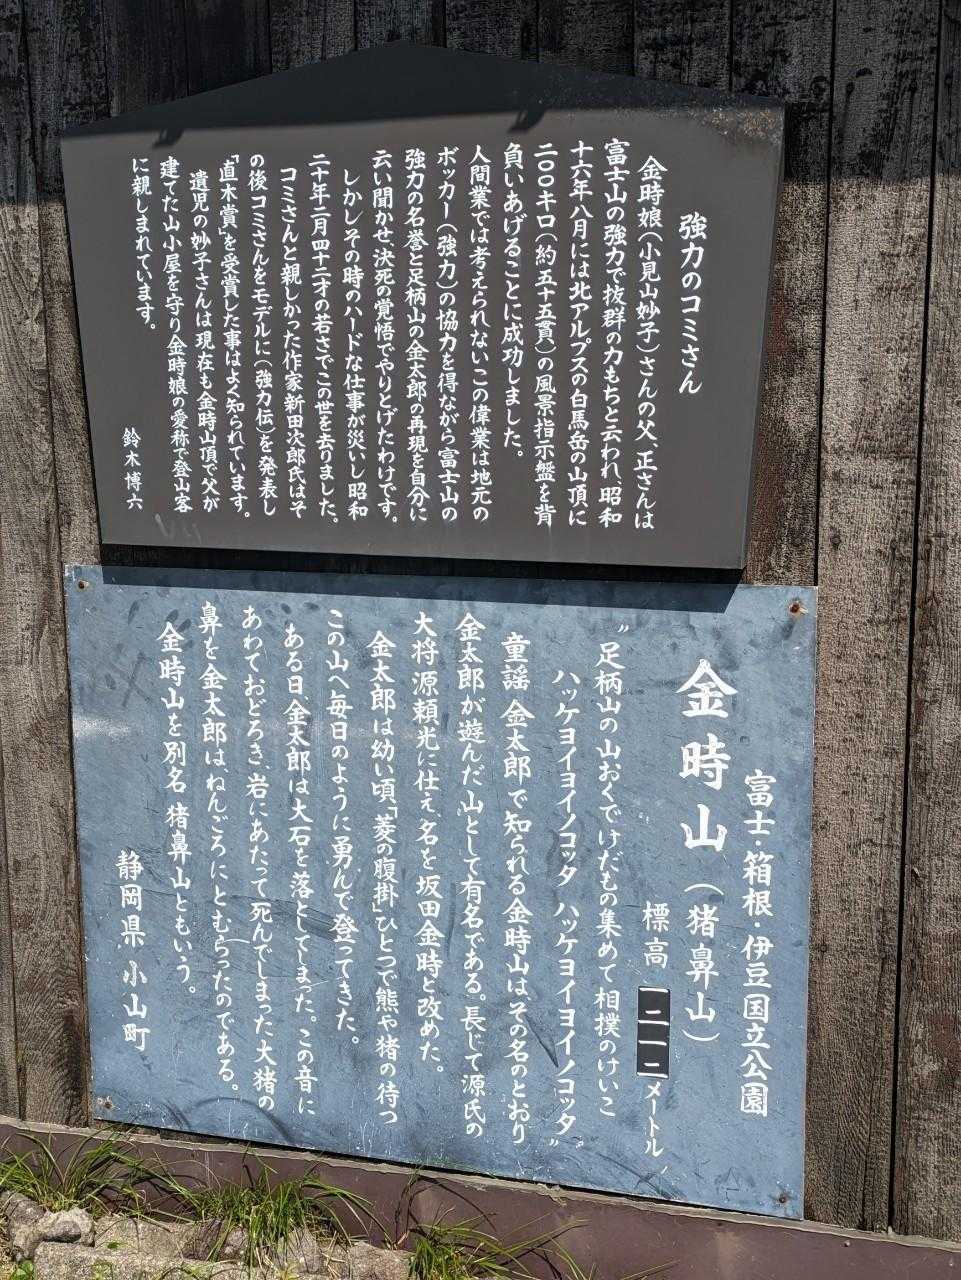 強力のコミさん
金時娘(小見山妙子)さんの父、正さんは
富士山の強力で抜群の力もちと云われ、昭和
十六年八月には北アルプスの白馬岳の山頂に
二〇〇キロ(約五十五貫)の風景指示盤を背
負いあげることに成功しました。
人間業では考えられないこの偉業は地元の
ボッカー(強力)の協力を得ながら富士山の
強力の名誉と足柄山の金太郎の再現を自分に
云い聞かせ、決死の覚悟でやりとげたわけです。
しかしその時のハードな仕事が災いし昭和
二十年二月四十二才の若さでこの世を去りました。
コミさんと親しかった作家新田次郎氏はそ
の後コミさんをモデルに(強力伝)を発表し
「直木賞」を受賞した事はよく知られています。
遺児の妙子さんは現在も金時山頂で父が
建てた山小屋を守り金時娘の愛称で登山客
に親しまれています。
鈴木博六
富士・箱根・伊豆国立公園
金時山(猪鼻山)
標高 一二一二メートル
〝足柄山の山おくでけだもの集めて相撲のけいこ
ハッケヨイヨイノコッタ ハッケヨイヨイノコッタ〟
童謡 金太郎で知られる金時山は、その名のとおり
金太郎が遊んだ山として有名である。長じて源氏の
大将源頼光に仕え、名を坂田金時と改めた。
金太郎は幼い頃、「菱の腹掛」ひとつで熊や猪の待つ
この山へ毎日のように勇んで登ってきた。
ある日、金太郎は大石を落としてしまった。この音に
あわておどろき、岩にあたって死んでしまった大猪の
鼻を金太郎は、ねんごろにとむらったのである。
金時山を別名 猪鼻山ともいう。
静岡県 小山町